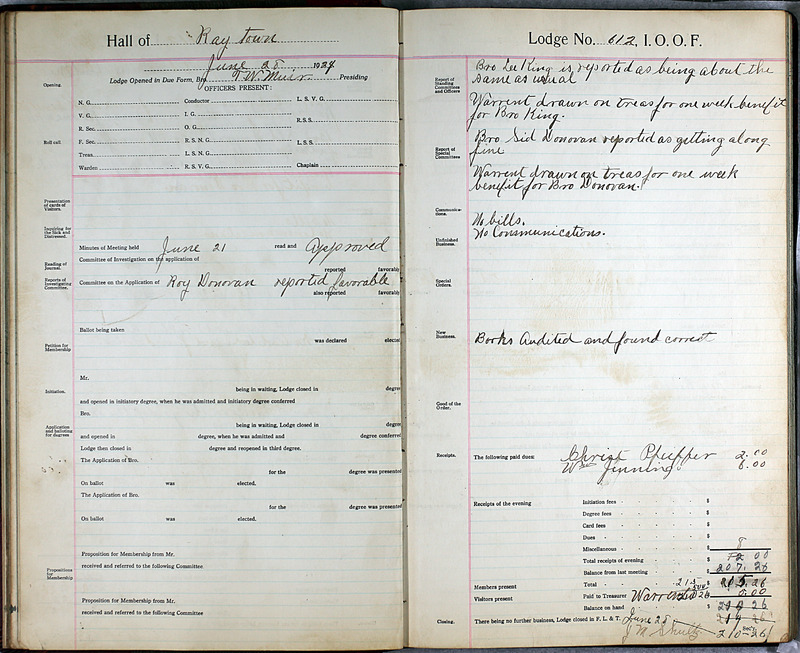 Hall of Raytown
June 28 1924
Lodge Opened in Due Form, Bro. T. W. Muir Presiding
OFFICERS PRESENT:
Opening.
N. G. Conductor L. S. V. G.
V. G. I. G.
R. Sec. O. G. R.S.S.
Roll call F. Sec. R. S. N. G. L.S.S.
Treas. L. S. N. G.
Warden R. S. V. G. Chaplain
Presentation of cards of Visitors.
Inquiring for the Sick and Distressed.
Minutes of Meeting held June 21 read and Approved
Reading of Journal.
Committee of Investigation on the application of
reported favorabl
Reports of Investigating Committee.
Committee on the Application of Roy Donovan reported favorable
also reported favorabl
Ballot being taken
Petition for Membership
was declared elected
Mr.
Initiation.
being in waiting, Lodge closed in degree
and opened in initiatory degree, when he was admitted and initiatory degree conferred
Bro.
Application and balloting for degrees
being in waiting, Lodge closed in degre
and opened in degree, when he was admitted and degree conferred
Lodge then closed in degree and reopened in third degree.
The Application of Bro.
for the degree was presented
On ballot was elected.
The Application of Bro.
for the degree was presented
On ballot was elected.
Proposition for Membership from Mr.
Propositions for Membership
received and referred to the following Committee
Proposition for Membership from Mr.
received and referred to the following Committee
Lodge No. 612, I. O. O. F.
Report of Standing Committees and Officers
Bro Lee King is reported as being about the
same as usual
Warrent drawn on treas for one week benefit
for Bro King.
Report of Special Committees
Bro Sid Donovan reported as getting along
fine
Warrent drawn on treas for one week
benefit for Bro Donovan.
Communications.
No bills.
No Consmunications.
Unfinished Business.
Special Orders.
New Business.
Books Audited and found correct
Good of the Order.
Receipts. The following paid dues: Christ Pfeiffer 2.00
Wm Jinning 6.00
Receipts of the evening Initiation fees $
Degree fees $
Card fees $
Dues $
Miscellaneous $ 8
Total receipts of evening $ 00
Balance from last meeting $ 207.26
Members present Total $ 215.26
Visitors present Paid to Treasurer Warrents
Balance on hand $
Closing. There being no further business, Lodge closed in F. L. & T. June 28
Sec'y.
210-26